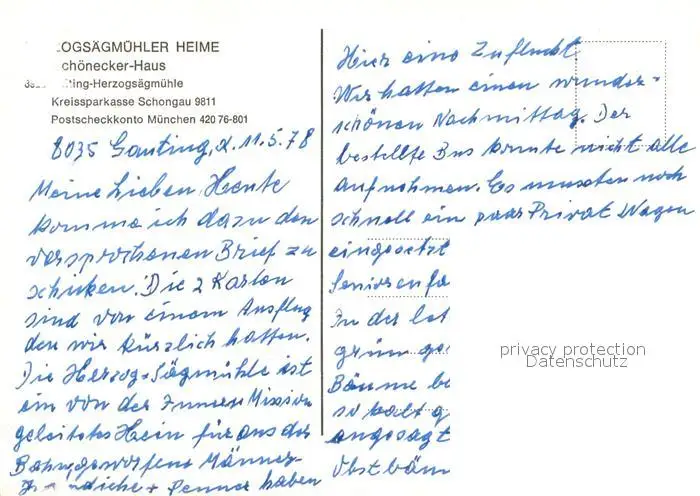 ZOGSÄGMÜHLER HEIME
chönecker-Haus
iting-Herzogsägmühle
Kreissparkasse Schongau 9811
Postscheckkonto München 420 76-801
8035 Gauting, d. 11.5.78
Meine Lieben. Heute
komme ich dazu den
versprochenen Brief zu
schicken. Die 2 Karten
sind von einem Ausflug
den wir kürzlich hatten.
Die Herzog-Sägmühle ist
ein von der Inneren Mission
geleitetes Heim für aus der
Bahn geworfene Männer
Jugendliche + Penner haben
Hier eine Zuflucht
Wir hatten einen wunder-
schönen Nachmittag. Der
bestellte Bus konnte nicht alle
aufnehmen. Es mussten noch
schnell ein paar Privat Wagen
eingesetzt
Seniorenfa
In der let
grün ge
Bäume be
so kalt g
angesagt
Obstbäm
privacy protection
Datenschutz